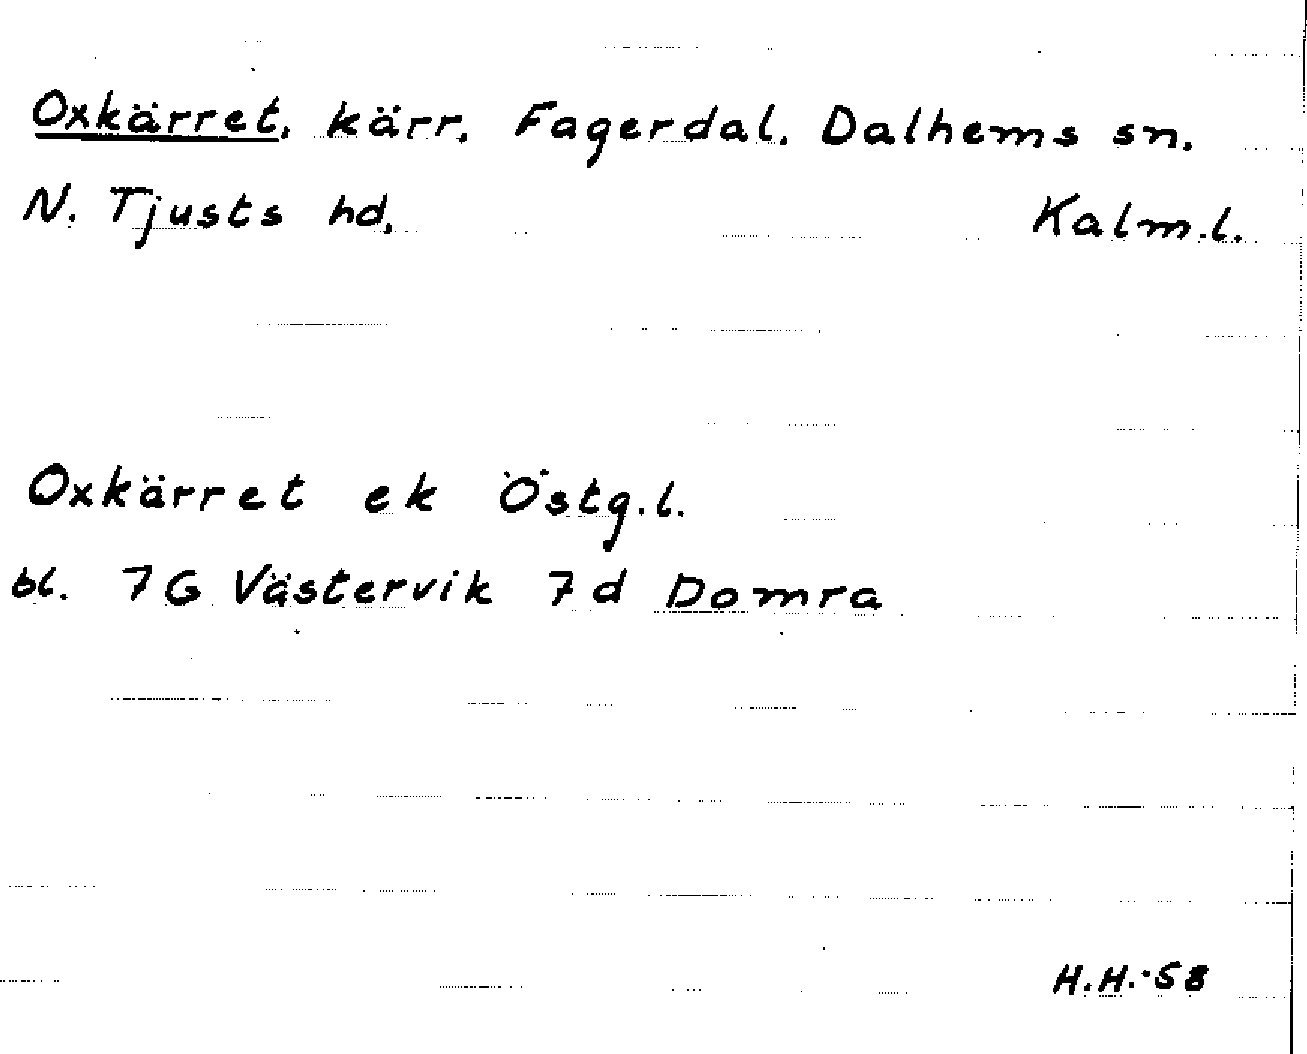 Oxkärret, kärr, Fagerdal. Dalhems sn.
N. Tjusts hd, Kalm.l.
Oxkärret ek Östg.l.
bl. 7G Västervik 7d Domra
H.H.-58